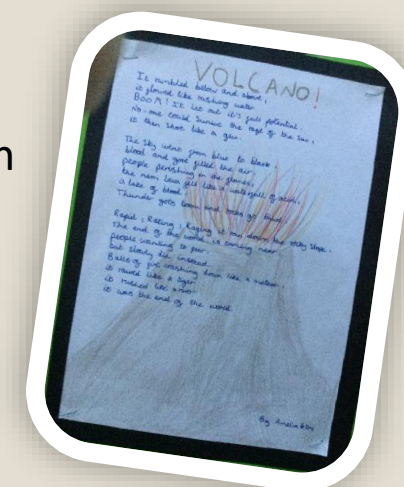 VOLCANO!
It rumbled below and above,
it flowed like rushing water
BOOM! It let out it's full potential.
No-one could survive the rage of the
it then shot like a gun.
The sky went from blue to black
blood and gore filled the air
people perishing in the flames,
the neon lava fell like a waterfall of
a lake of blood
Thunder goes boom and goes
Rapid, Racing, Raging it ran down the rocky slope.
The end of the world is coming near
people wanting to
but slowly did instead.
Balls of fire crashing down like a meteor
it roared like a tiger
it rushed like a river
it was the end of the world.
By Amelia